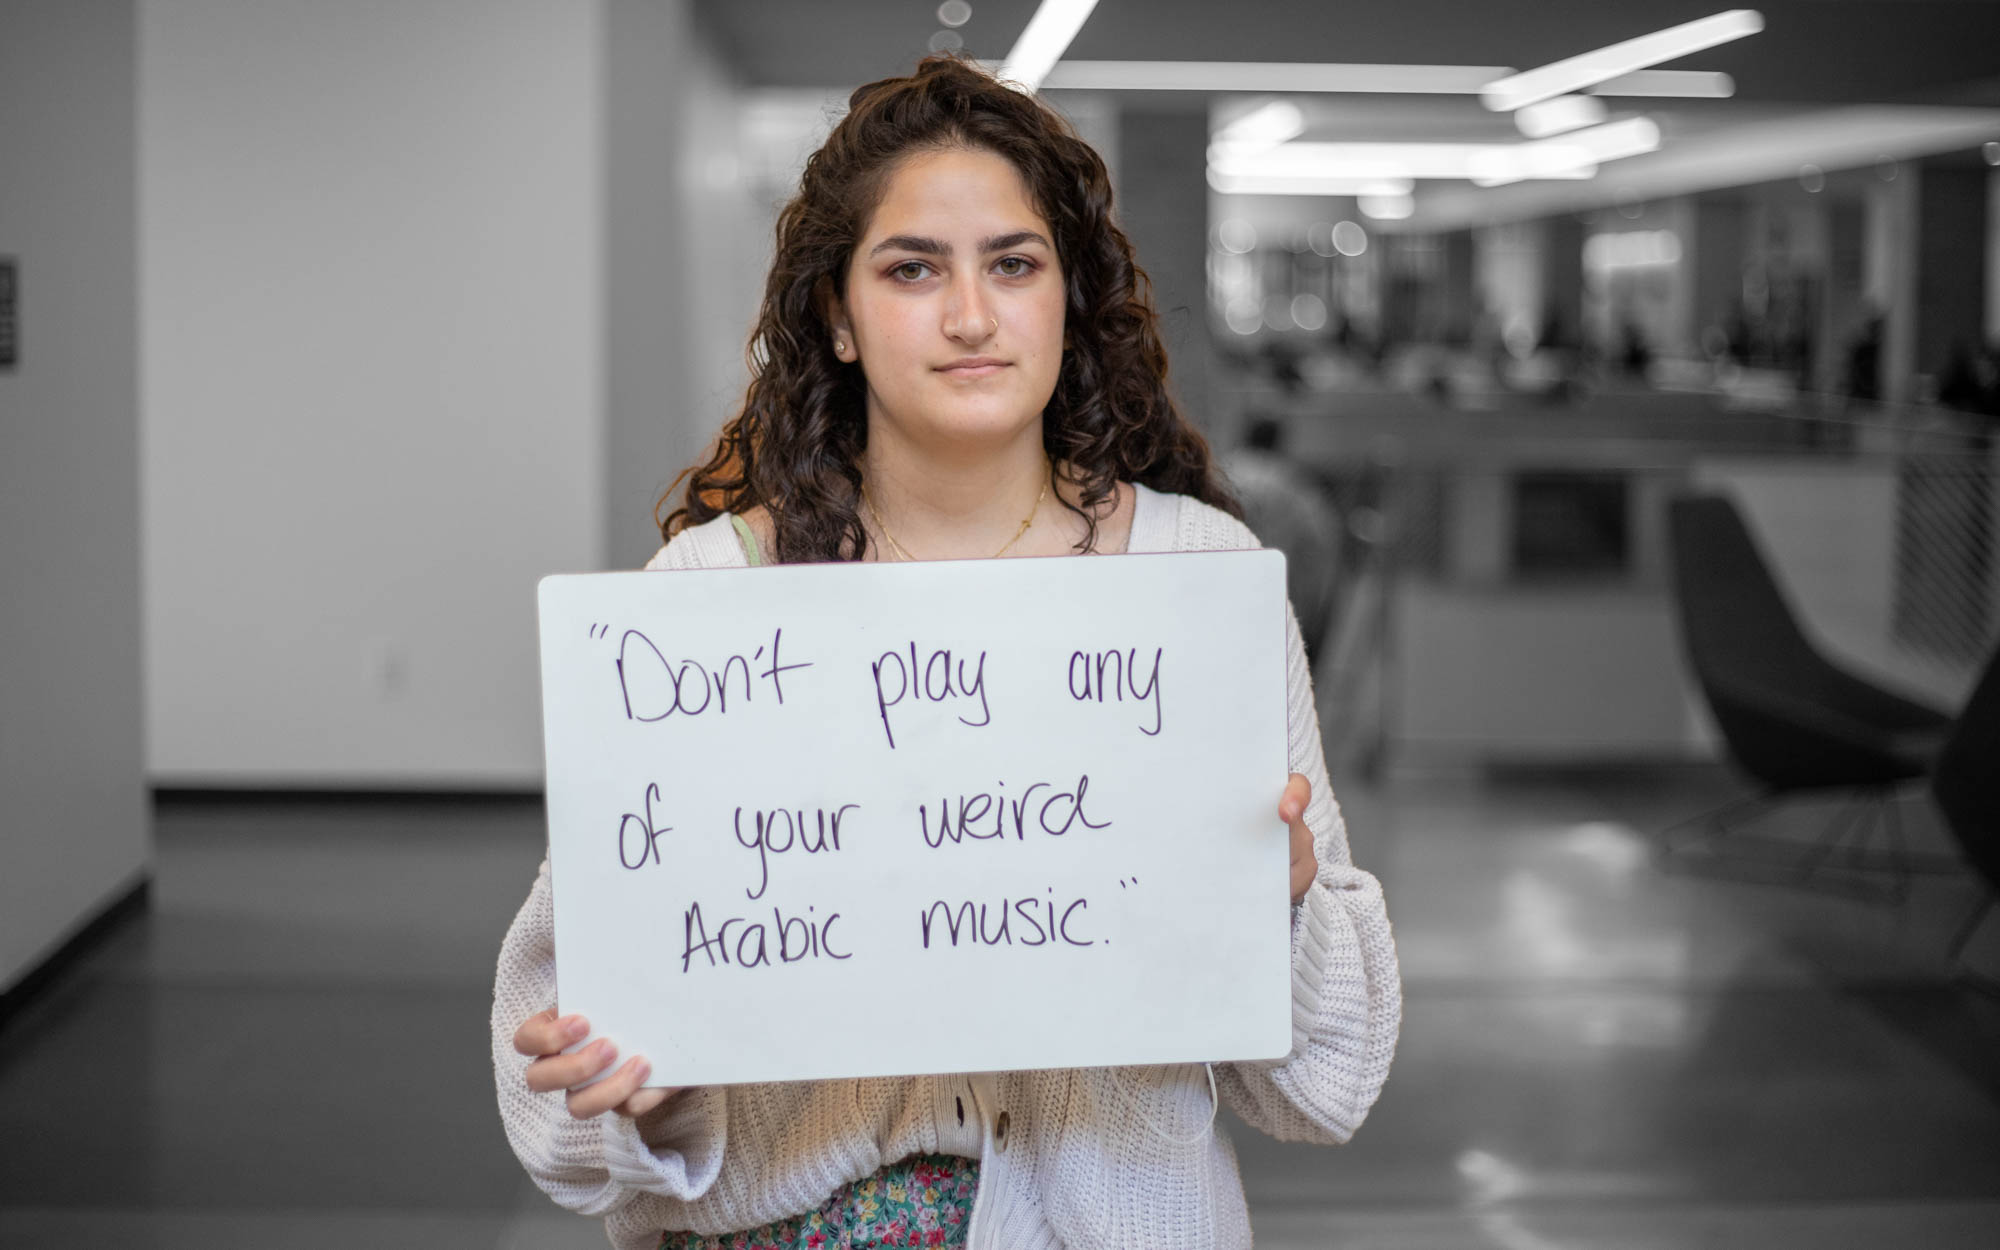 "Don't play any
of your weird
Arabic music."